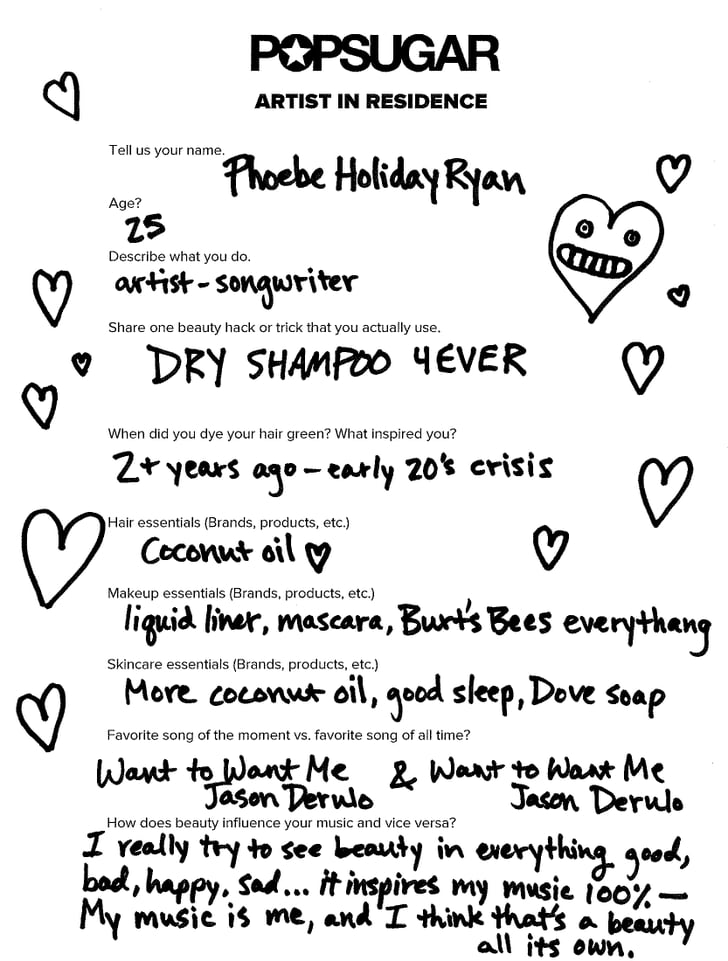 POPSUGAR
ARTIST IN RESIDENCE
Tell us your name.
Phoebe Holiday Ryan
Age?
25
Describe what you do.
artist-songwriter
Share one beauty hack or trick that you actually use.
DRY SHAMPOO 4EVER
When did you dye your hair green? What inspired you?
2+ years ago - early 20's crisis
Hair essentials (Brands, products, etc.)
Coconut oil ♥
Makeup essentials (Brands, products, etc.)
liquid liner, mascara, Burt's Bees everythang
Skincare essentials (Brands, products, etc.)
More coconut oil, good sleep, Dove soap
Favorite song of the moment vs. favorite song of all time?
Want to Want Me & Want to Want Me
Jason Derulo Jason Derulo
How does beauty influence your music and vice versa?
I really try to see beauty in everything good,
bad, happy, sad... it inspires my music 100% -
My music is me, and I think that's a beauty
all its own.